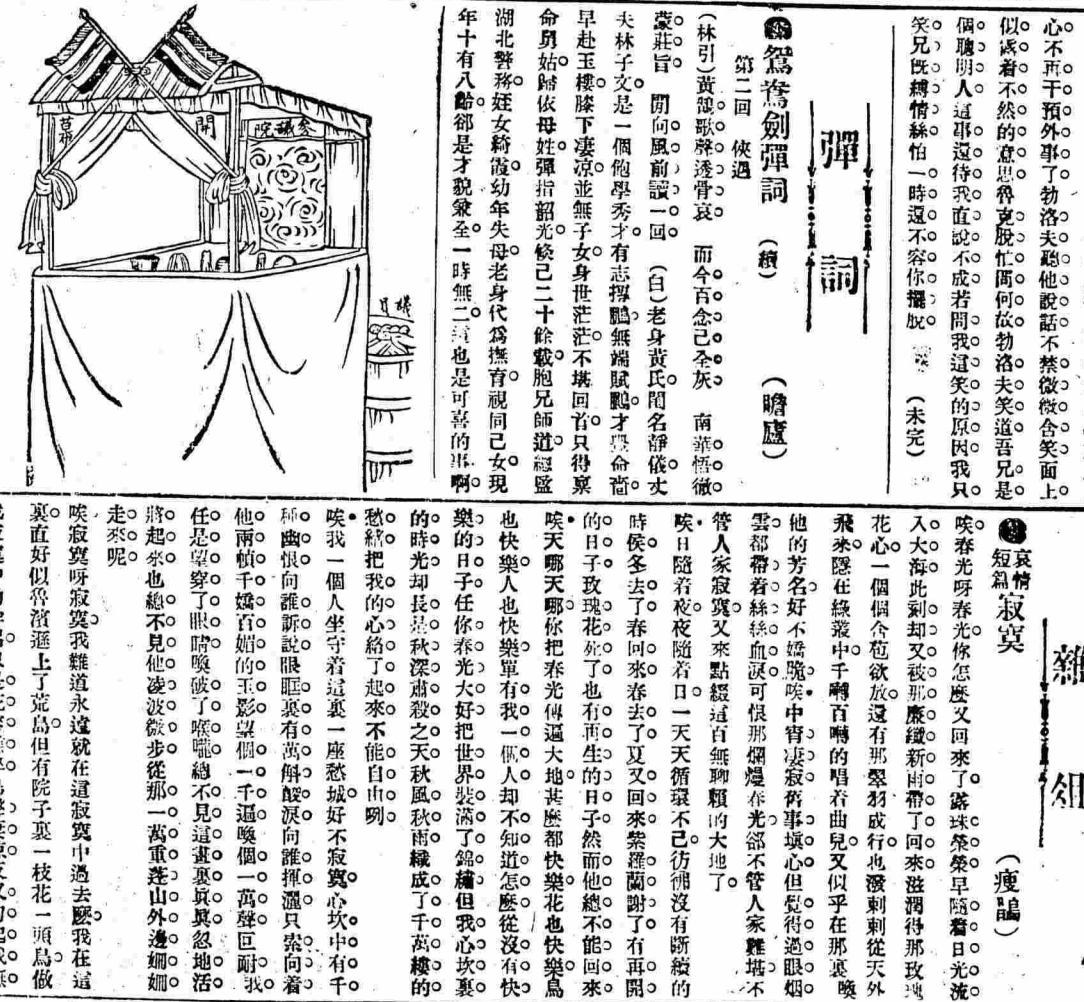 心不再干預外事了勃洛夫聽他說話不禁微微含笑面上
似露着不然的意思魯克脫忙問何故勃洛夫笑道吾兄是
個聰明人這事還待我直說不成若問我這笑的原因我只
笑兄旣縛情絲怕一時還不容你擺脫 (未完)
彈詞
鴛鴦劍彈詞 (續) (瞻廬)
第二回 俠遇
(林引)黃鵠歌聲透骨哀 而今百念已全灰 南華悟徹
蒙莊旨 閒向風前讀一回 (白)老身黃氏閨名靜儀丈
夫林子文是一個飽學秀才有志摶鵬無端賦鵩才豐命嗇
早赴玉樓膝下凄凉並無子女身世茫茫不堪回首只得稟
命舅姑歸依母姓彈指韶光倐已二十餘載胞兄師道總監
湖北警務姪女綺霞幼年失母老身代爲撫育視同己女現
年十有八齡卻是才貌兼全一時無二這也是可喜的事啊
參議院
開
幕
議員
雜俎
哀情短篇 寂寞 (瘦鵑)
唉春光呀春光你怎麽又回來了露珠榮榮早隨着日光流
入大海此剩却又被那廉纖新雨帶了回來滋潤得那玫瑰
花心一個個含苞欲放還有那翠羽成行也潑剌剌從天外
飛來隱在綠叢中千囀百囀的唱着曲兒又似乎在那裏喚
他的芳名好不嬌脆唉中宵凄寂舊事塡心但覺得過眼烟
雲都帶着絲絲血淚可恨那爛熳春光卻不管人家難堪不
管人家寂寞又來點綴這百無聊賴的大地了
唉日隨着夜夜隨着日一天天循環不已彷彿沒有斷續的
時侯冬去了春回來春去了夏又回來紫羅蘭謝了有再開
的日子玫瑰花死了也有再生的日子然而他總不能回來
唉天哪天哪你把春光傳遍大地甚麽都快樂花也快樂鳥
也快樂人也快樂單有我一個人却不知道怎麽從沒有快
樂的日子任你春光大好把世界裝滿了錦繡但我心坎裏
的時光却長是秋深肅殺之天秋風秋雨織成了千萬縷的
愁緒把我的心絡了起來不能自由咧
唉我一個人坐守着這裏一座愁城好不寂寞心坎中有千
種幽恨向誰訴說眼眶裏有萬斛酸淚向誰揮灑只索向着
他兩幀千嬌百媚的玉影望個一千遍喚個一萬聲叵耐我
任是望穿了眼睛喚破了喉嚨總不見這畫裏眞眞忽地活
將起來也總不見他凌波微步從那一萬重蓬山外邊姍姍
走來呢
唉寂寞呀寂寞我難道永遠就在這寂寞中過去麽我在這
裏直好似魯濱遜上了荒島但有院子裏一枝花一頭鳥做